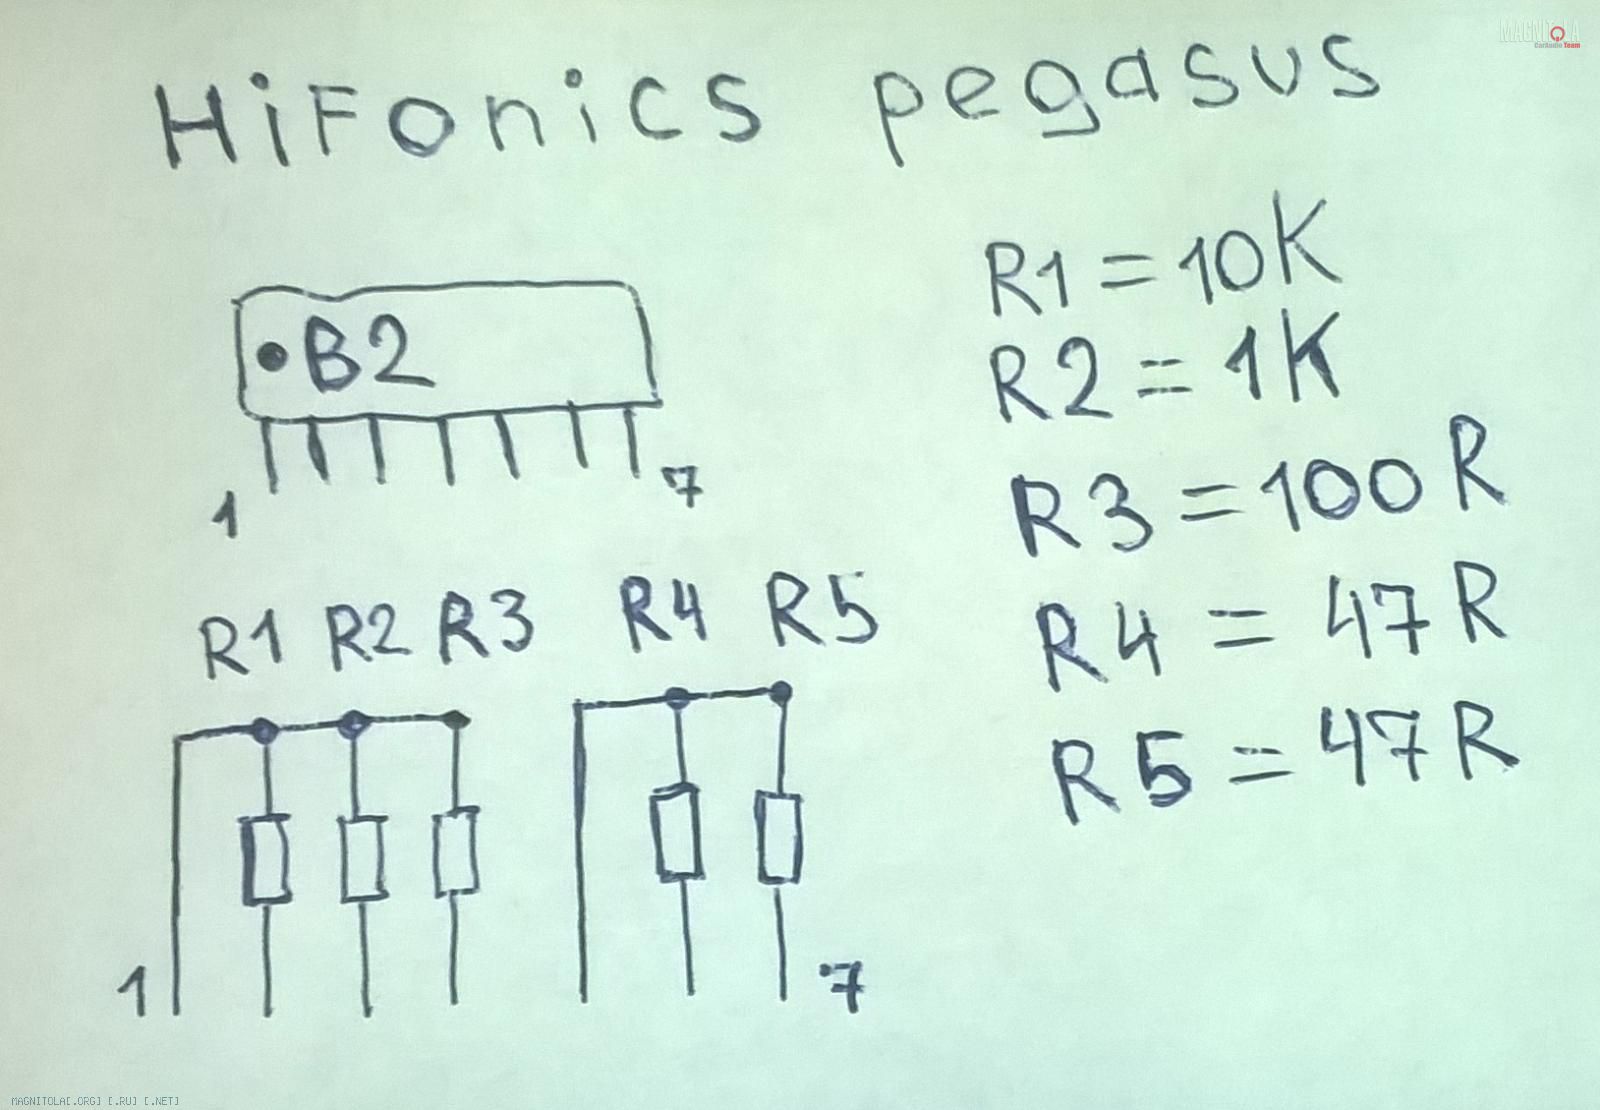 HiFonics pegasus
MAGNITOLA
CarAudio Team
R1 = 10K
R2 = 1K
R3 = 100R
R4 = 47R
R5 = 47R
B2
1 7
R1 R2 R3 R4 R5
1 7
MAGNITOLA[.ORG] [.RU] [.NET]